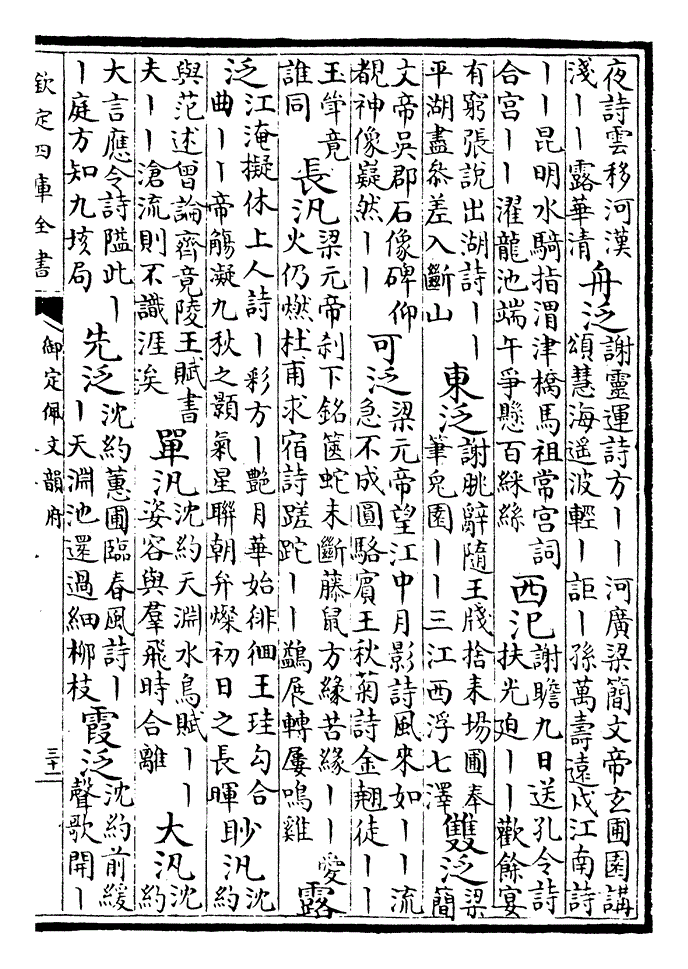 夜詩雲移河漢淺丨丨露華清 舟泛 謝靈運詩方丨丨河廣梁簡文帝玄圃園講頌慧海遥波輕丨詎丨孫萬壽遠戍江南詩
丨丨昆明水騎指渭津橋馬祖常宫詞合宫丨丨濯龍池端午爭懸百綵絲 西汜 謝瞻九日送孔令詩扶光廹丨丨歡餘宴
有窮張說出湖詩丨丨平湖盡叅差入斷山 東泛 謝朓辭隨王牋捨耒場圃奉筆兎園丨丨三江西浮七澤 雙泛 梁簡
文帝吳郡石像碑仰覩神像嶷然丨丨 可泛 梁元帝望江中月影詩風來如丨丨流急不成圓駱賓王秋菊詩金翹徒丨丨
玉斚竟誰同 長汎 梁元帝刹下銘篋蛇未斷藤鼠方緣苦緣丨丨愛火仍燃杜甫求宿詩蹉跎丨丨鷁展轉屢鳴雞 露
泛 江淹擬休上人詩丨彩方丨艷月華始徘徊王珪勾合曲丨丨帝觴凝九秋之顥氣星聯朝弁燦初日之長暉 眇汎 沈約
與范述曾論齊竟陵王賦書夫丨丨滄流則不識涯涘 單汎 沈約天淵水鳥賦丨丨姿容與羣飛時合離 大汎 沈約
大言應令詩隘此丨丨庭方知九垓局 先泛 沈約蕙圃臨春風詩丨丨天淵池還過細柳枝 霞泛 沈約前緩聲歌開丨
欽定四庫全書 御定佩文韻府 三十二